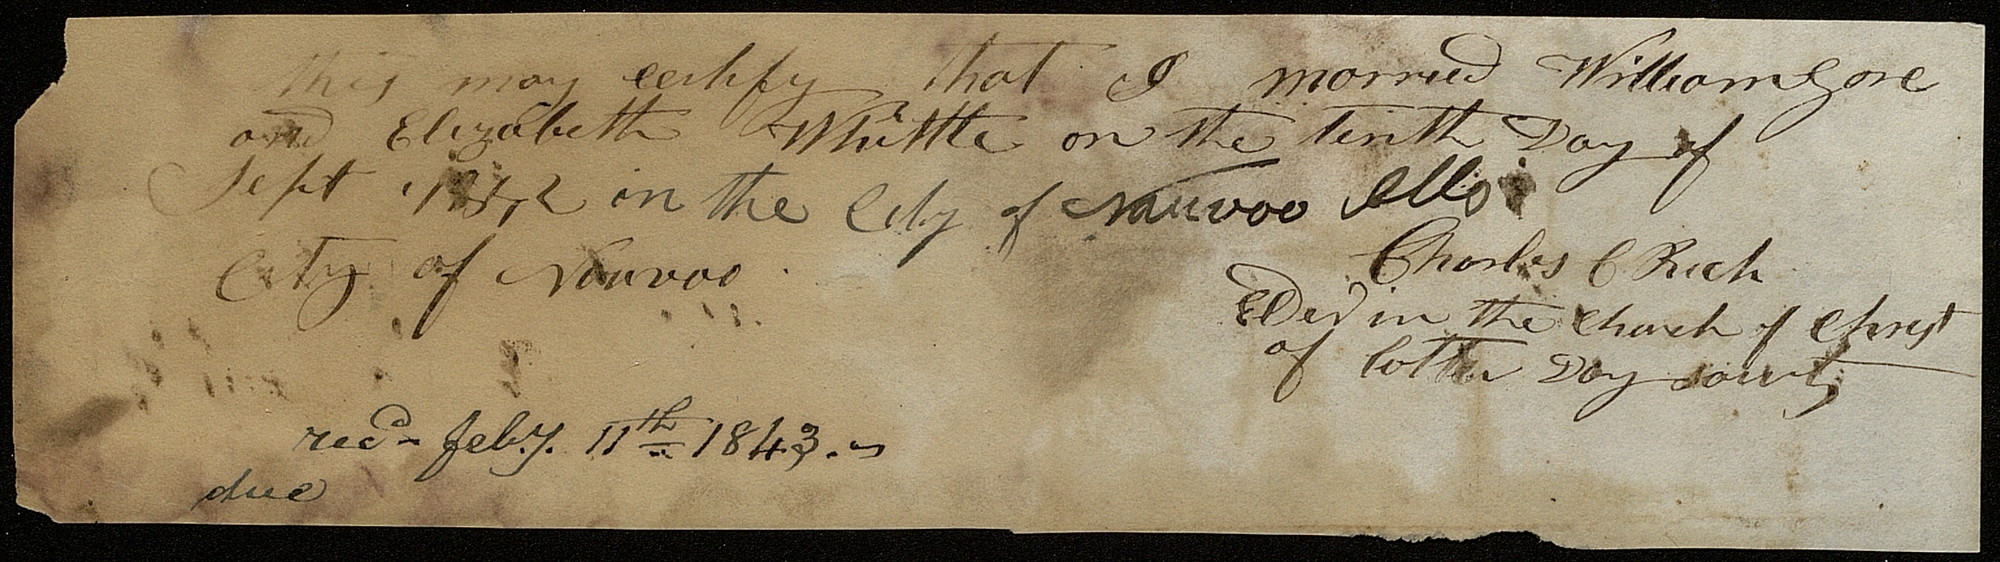 This may certify that I married William Gore
and Elizabeth Whittle on the tenth Day of
Sept 1842 in the City of Nauvoo Ills
City of Nauvoo.
Charles C Rich
Elder in the Church of Christ
of latter Day saints
recd- feby. 11th 1843.
due